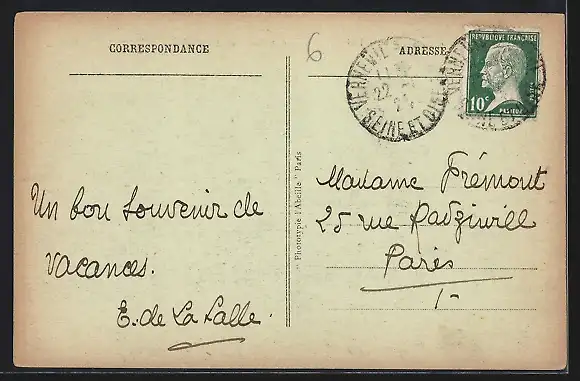 CORRESPONDANCE
6
ADRESSE
REPUBLIQUE FRANÇAISE
10c
PASTEUR
VERNEUIL
11
22
SEINE ET OISE
Un bon souvenir de
vacances.
E. de La Salle.
" Phototypie l'Abeille " Paris
Madame Frémont
25 rue Radziwill
Paris
1-